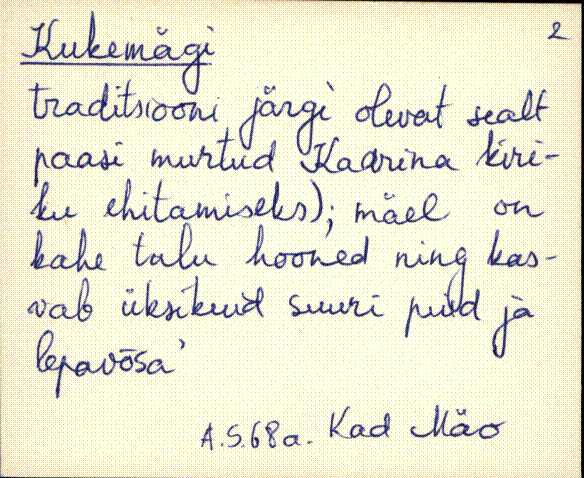 Kukemägi 2
traditsiooni järgi olevat sealt
paasi murtud Kadrina kiri-
ku ehitamiseks); mäel on
kahe talu hooned ning kas-
vab üksikuid suuri puid ja
lepavõsa'
A.S.68a. Kad Mäo